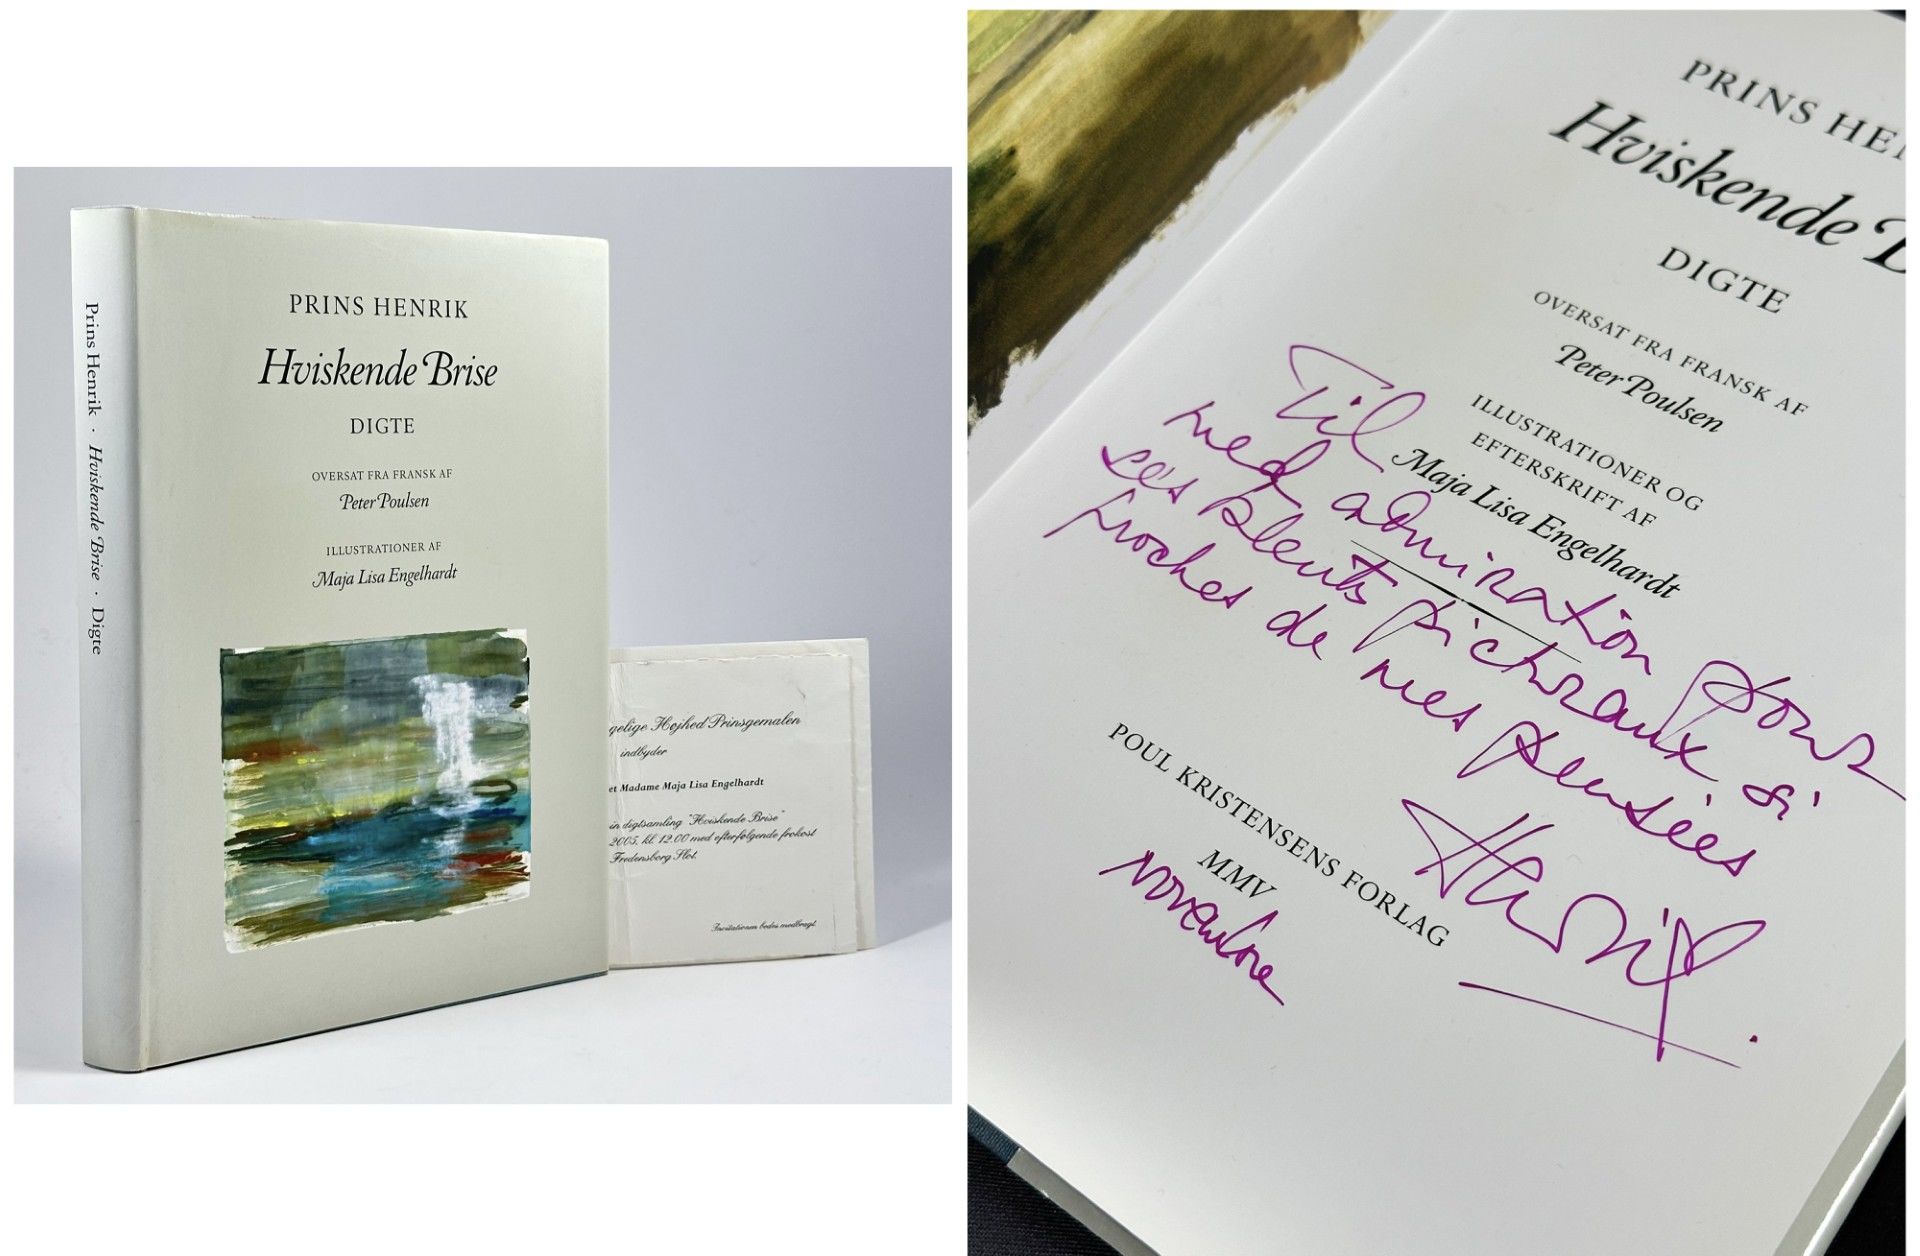 Prins Henrik · Hviskende Brise · Digte
PRINS HENRIK
Hviskende Brise
DIGTE
OVERSAT FRA FRANSK AF
Peter Poulsen
ILLUSTRATIONER AF
Maja Lisa Engelhardt
gelige Højhed Prinsgemalen
indbyder
et Madame Maja Lisa Engelhardt
in digtsamling "Hviskende Brise"
2005, kl. 12.00 med efterfølgende frokost
Fredensborg Slot.
Invitationen bedes medbragt.
PRINS HEN
Hviskende B
DIGTE
OVERSAT FRA FRANSK AF
Peter Poulsen
ILLUSTRATIONER OG
EFTERSKRIFT AF
Til Maja Lisa Engelhardt
med admiration pour
ses talents picturaux si
proches de mes pensées
Henrik
POUL KRISTENSENS FORLAG
MMV
novembre